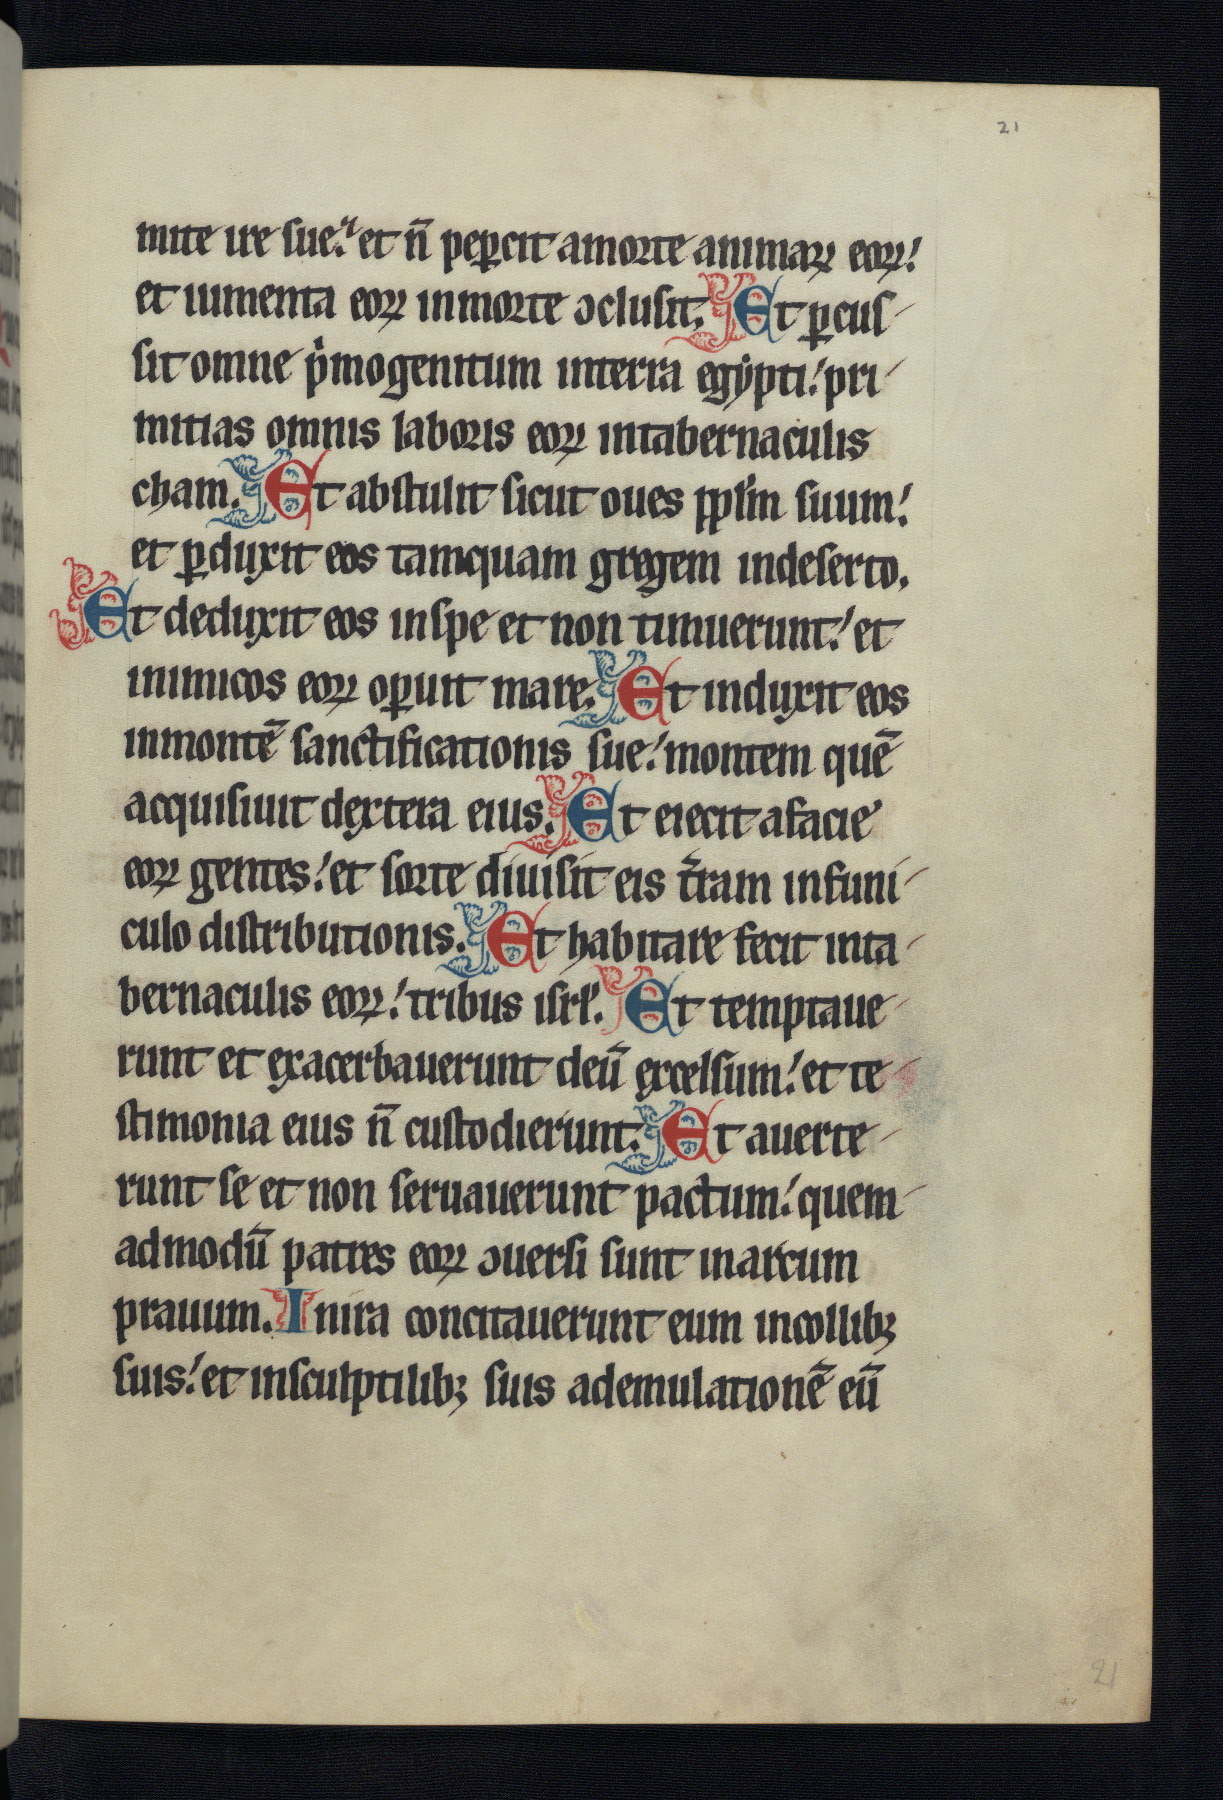 21
mite ire sue. et n̄ peꝑcit amorte animaꝝ eoꝝ.
et iumenta eoꝝ inmorte ɔclusit. Et ꝑcus-
sit omne p̍mogenitum interra egẏpti. pri-
mitias omnis laboris eoꝝ intabernaculis
cham. Et abstulit sicut oues pp̄lm suum.
et ꝑduxit eos tamquam gregem indeserto.
Et deduxit eos inspe et non timuerunt. et
inimicos eoꝝ oꝑuit mare. Et induxit eos
inmontē sanctificationis sue. montem quē
acquisiuit dextera eius. Et eiecit afacie
eoꝝ gentes. et sorte diuisit eis t̄ram infuni-
culo distributionis. Et habitare fecit inta-
bernaculis eoꝝ. tribus isrl̄. Et temptaue-
runt et exacerbauerunt deū excelsum. et te-
stimonia eius n̄ custodierunt. Et auerte-
runt se et non seruauerunt pactum. quem-
admodū patres eoꝝ ɔuersi sunt inarcum
prauum. Inira concitauerunt eum incollibꝫ
suis. et insculptilibꝫ suis ademulationē eū
21